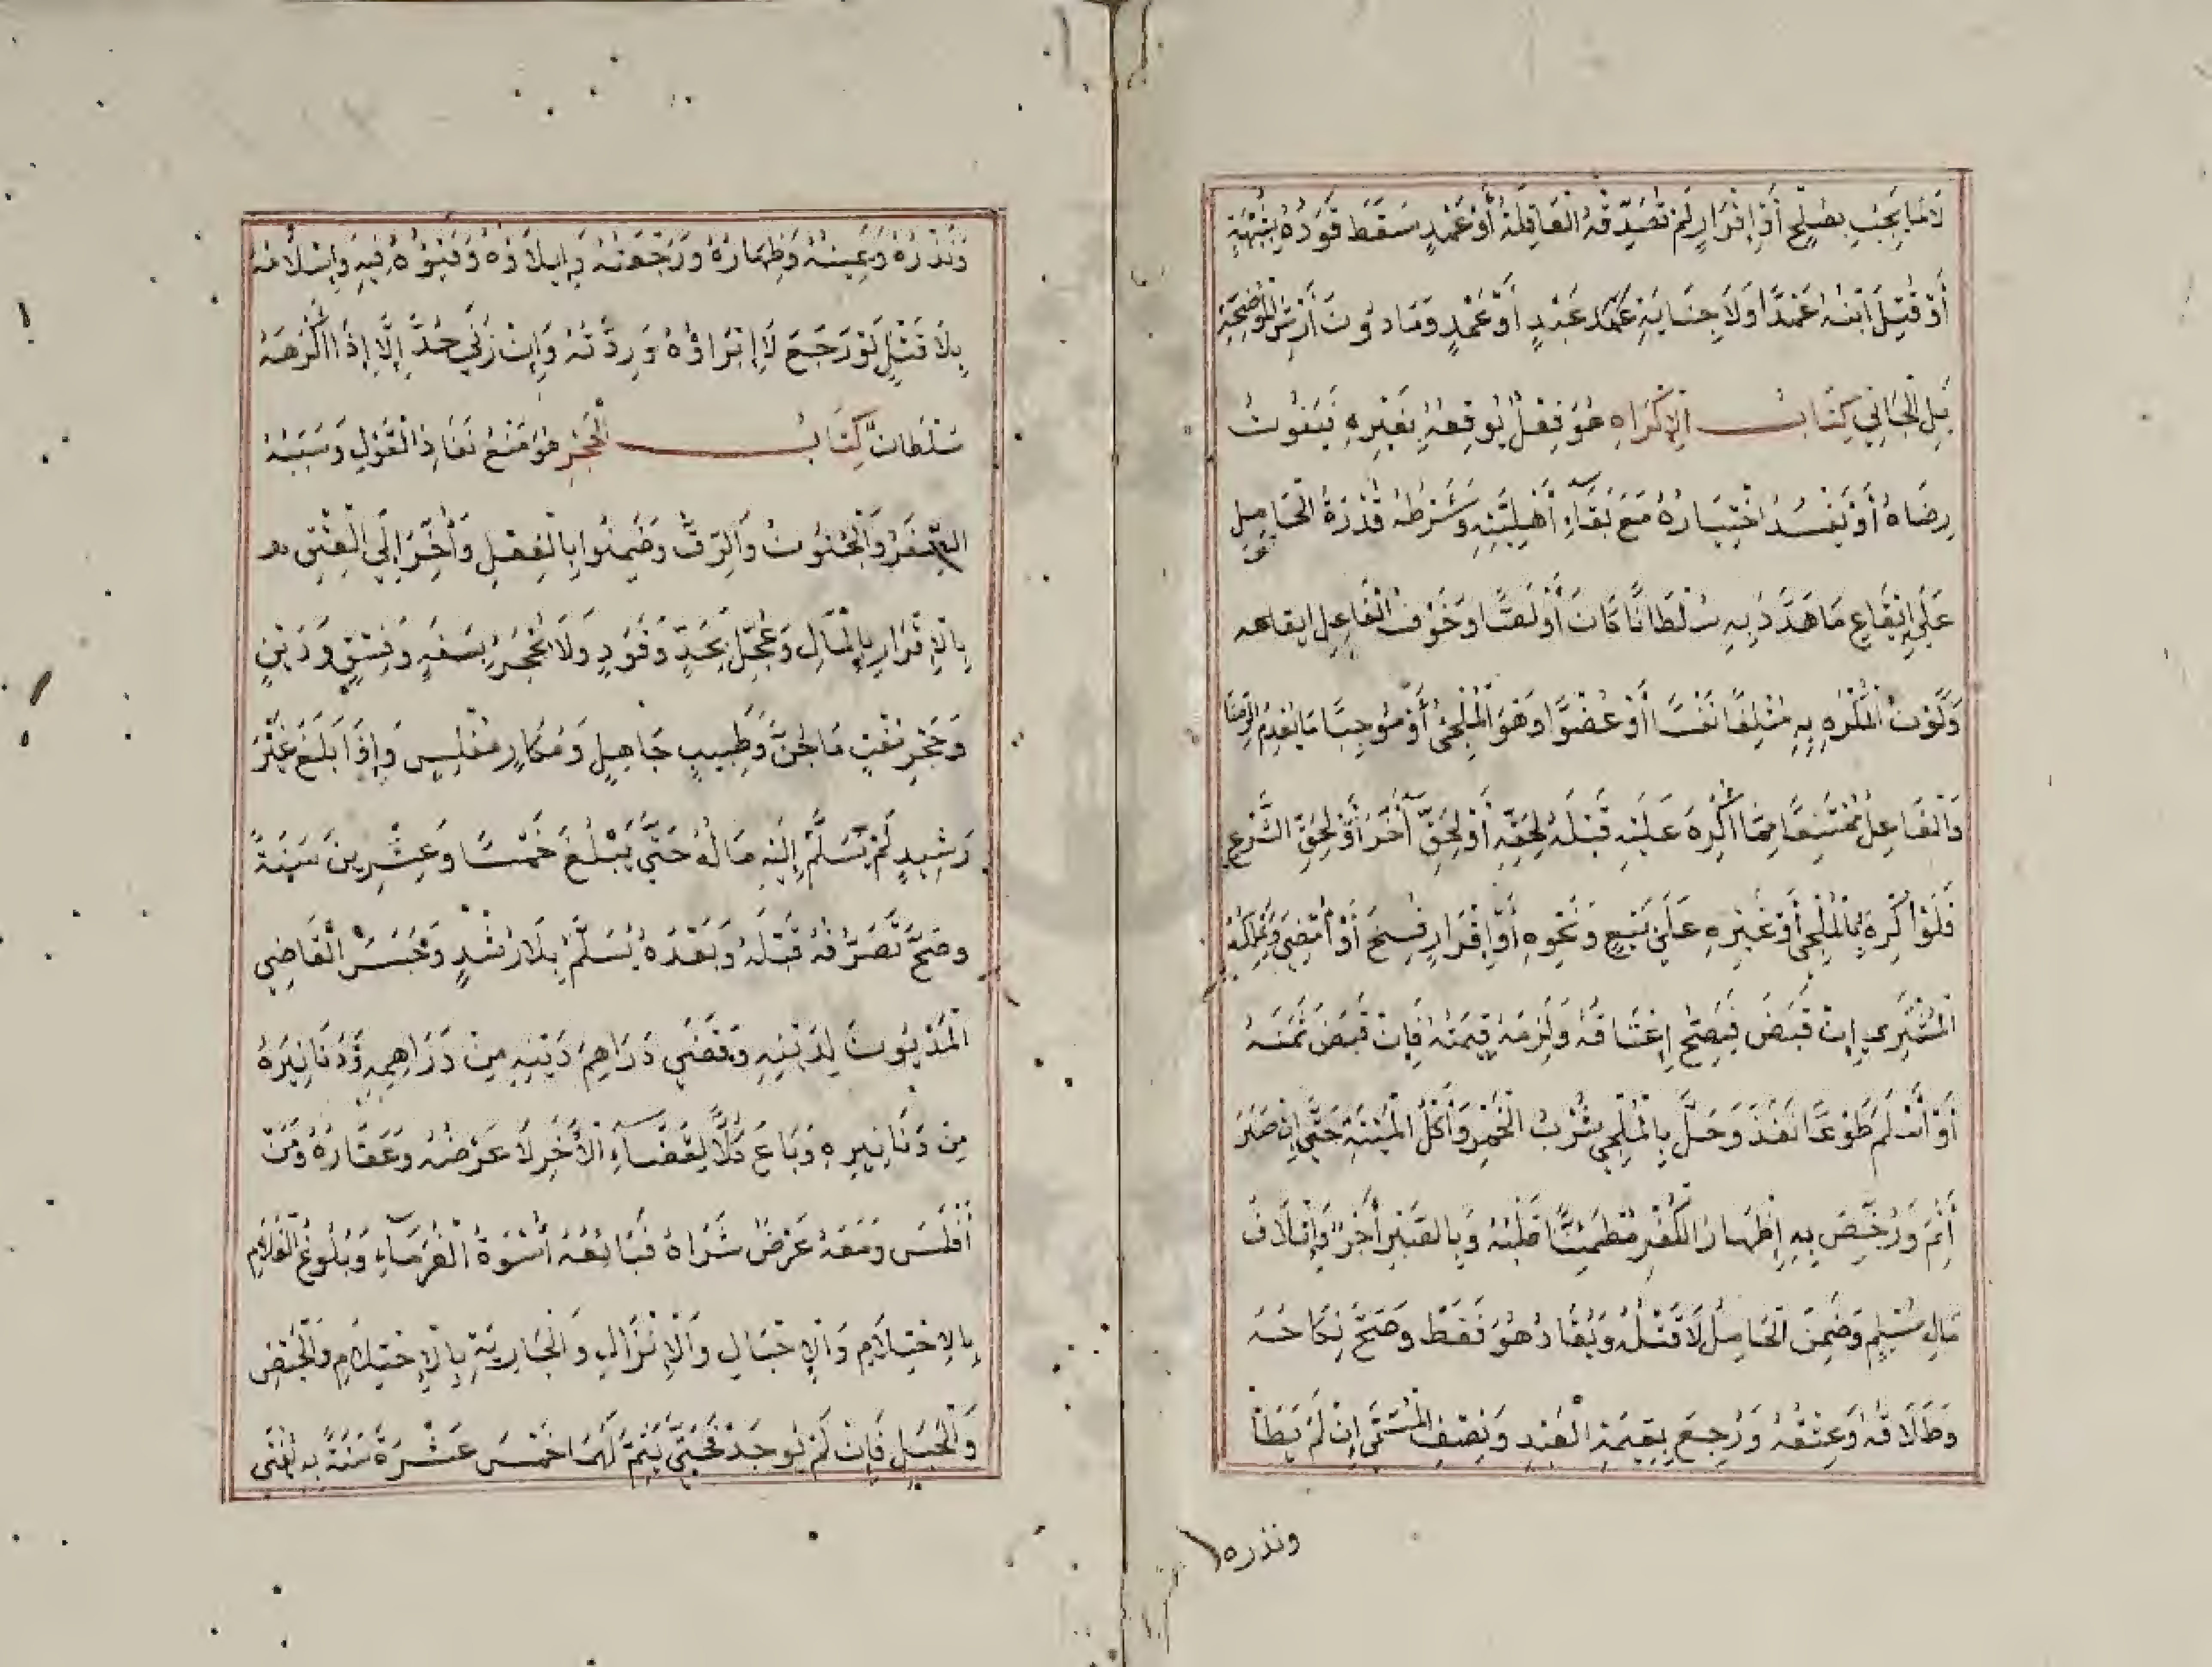 لَا مَا يَجِبُ بِصُلْحٍ أَوْ إِقْرَارٍ لَمْ تُصَدِّقْهُ الْعَاقِلَةُ أَوْ عَمْدٍ سَقَطَ قَوَدُهُ بِشُبْهَةٍ
أَوْ قَتْلِ ابْنِهِ عَمْدًا وَلَا جِنَايَةِ عَبْدٍ أَوْ عَمْدٍ وَمَا دُونَ أَرْشِ الْمُوضِحَةِ
بَلِ الْجَانِي كِتَابُ الْإِكْرَاهِ هُوَ فِعْلٌ يُوقِعُهُ بِغَيْرِهِ فَيَفُوتُ
رِضَاهُ أَوْ يَفْسُدُ اخْتِيَارُهُ مَعَ بَقَاءِ أَهْلِيَّتِهِ وَشَرْطُهُ قُدْرَةُ الْحَامِلِ
عَلَى إِيقَاعِ مَا هَدَّدَ بِهِ سُلْطَانًا كَانَ أَوْ لَصًّا وَخَوْفُ الْفَاعِلِ ايقاعه
وَكَوْنُ الْمُكْرَهِ بِهِ مُتْلِفًا نَفْسًا أَوْ عُضْوًا وَهُوَ الْمُلْجِئُ أَوْ مُوجِبًا مَا يُعْدِمُ الرِّضَا
وَالْفَاعِلُ مُمْتَنِعًا مِمَّا أُكْرِهَ عَلَيْهِ قَبْلَهُ لِحَقِّهِ أَوْ لِحَقِّ آخَرَ أَوْ لِحَقِّ الشَّرْعِ
فَلَوْ أُكْرِهَ بِالْمُلْجِئِ أَوْ غَيْرِهِ عَلَى بَيْعٍ وَنَحْوِهِ أَوْ إِقْرَارٍ فَسَخَ أَوْ أَمْضَى وَيَمْلِكُهُ
الْمُشْتَرِي إِنْ قَبَضَ فَيَصِحُّ إِعْتَاقُهُ وَلَزِمَهُ قِيمَتُهُ فَإِنْ قَبَضَ ثَمَنَهُ
أَوْ سَلَّمَ طَوْعًا نَفَذَ وَحَلَّ بِالْمُلْجِئِ شُرْبُ الْخَمْرِ وَأَكْلُ الْمَيْتَةِ حَتَّى إِنْ صَبَرَ
أَثِمَ وَرُخِّصَ بِهِ إِظْهَارُ الْكُفْرِ مُطْمَئِنًّا قَلْبُهُ وَبِالصَّبْرِ أُجِرَ وَإِتْلَافُ
مَالِ مُسْلِمٍ وَضَمِنَ الْحَامِلُ لَا قَتْلُهُ وَيُقَادُ هُوَ فَقَطْ وَصَحَّ نِكَاحُهُ
وَطَلَاقُهُ وَعِتْقُهُ وَرَجَعَ بِقِيمَةِ الْعَبْدِ وَنِصْفِ الْمُسَمَّى إِنْ لَمْ يَطَأْ
ونذره
وَنَذْرُهُ وَيَمِينُهُ وَظِهَارُهُ وَرَجْعَتُهُ وَإِيلَاؤُهُ وَفَيْؤُهُ فِيهِ وَإِسْلَامُهُ
بِلَا قَتْلٍ لَوْ رَجَعَ لَا إِبْرَاؤُهُ وَرِدَّتُهُ وَإِنْ زَنَى حُدَّ إِلَّا إِذَا أَكْرَهَهُ
سُلْطَانٌ كِتَابُ الْحَجْرِ هُوَ مَنْعُ نَفَاذِ الْقَوْلِ وَسَبَبُهُ
الصِّغَرُ وَالْجُنُونُ وَالرِّقُّ وَضَمِنُوا بِالْفِعْلِ وَأُخِّرَ إِلَى الْعِتْقِ
بِالْإِقْرَارِ بِالْمَالِ وَعُجِّلَ بِحَدٍّ وَقَوَدٍ وَلَا يُحْجَرُ بِسَفَهٍ وَفِسْقٍ وَدَيْنٍ
وَحُجِرَ مُفْتٍ مَاجِنٌ وَطَبِيبٍ جَاهِلٍ وَمُكَارٍ مُفْلِسٍ وَإِذَا بَلَغَ غَيْرَ
رَشِيدٍ لَمْ يُسَلَّمْ إِلَيْهِ مَالُهُ حَتَّى يَبْلُغَ خَمْسًا وَعِشْرِينَ سَنَةً
وَصَحَّ تَصَرُّفُهُ قَبْلَهُ وَبَعْدَهُ يُسَلَّمُ بِلَا رُشْدٍ وَحَبَسَ الْقَاضِي
الْمَدْيُونَ لِدَيْنِهِ وَقَضَى دَرَاهِمَ دَيْنِهِ مِنْ دَرَاهِمِهِ وَدَنَانِيرَهُ
مِنْ دَنَانِيرِهِ وَبَاعَ كُلًّا لِقَضَاءِ الْآخَرِ لَا عَرْضَهُ وَعَقَارَهُ وَمَنْ
أَفْلَسَ وَمَعَهُ عَرْضٌ شَرَاهُ فَبَائِعُهُ أُسْوَةُ الْغُرَمَاءِ وَبُلُوغُ الْغُلَامِ
بِالِاحْتِلَامِ وَالْإِحْبَالِ وَالْإِنْزَالِ وَالْجَارِيَةِ بِالِاحْتِلَامِ وَالْحَيْضِ
وَالْحَبَلِ فَإِنْ لَمْ يُوجَدْ فَحَتَّى يَتِمَّ لَهُمَا خَمْسَ عَشْرَةَ سَنَةً بِهِ يُفْتَى